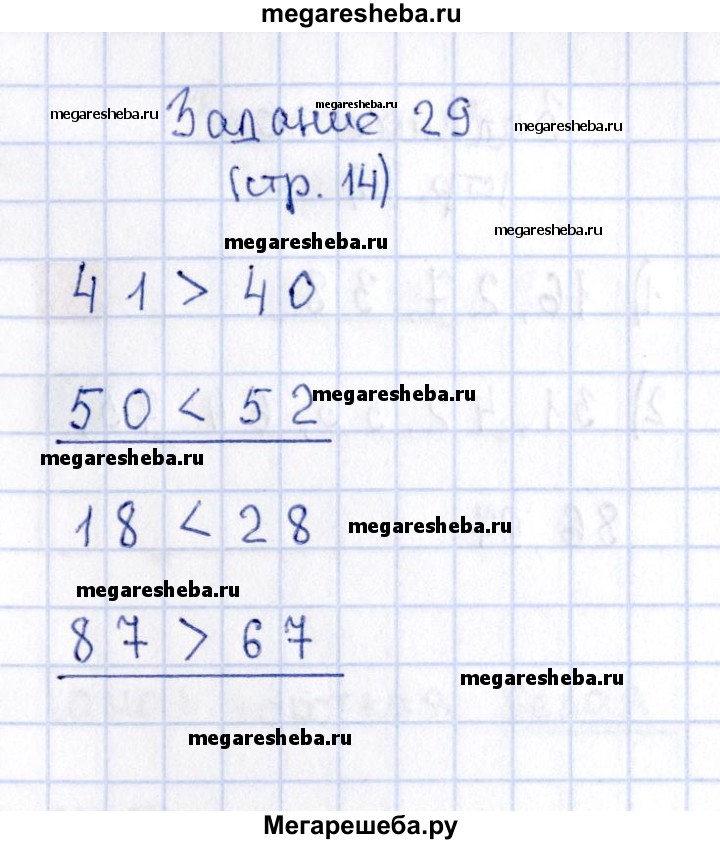 megaresheba.ru
megaresheba.ru
megaresheba.ru
Задание 29
megaresheba.ru
(стр. 14)
megaresheba.ru
megaresheba.ru
41 > 40
50 < 52
megaresheba.ru
megaresheba.ru
18 < 28
megaresheba.ru
megaresheba.ru
87 > 67
megaresheba.ru
megaresheba.ru
Мегарешеба.ру